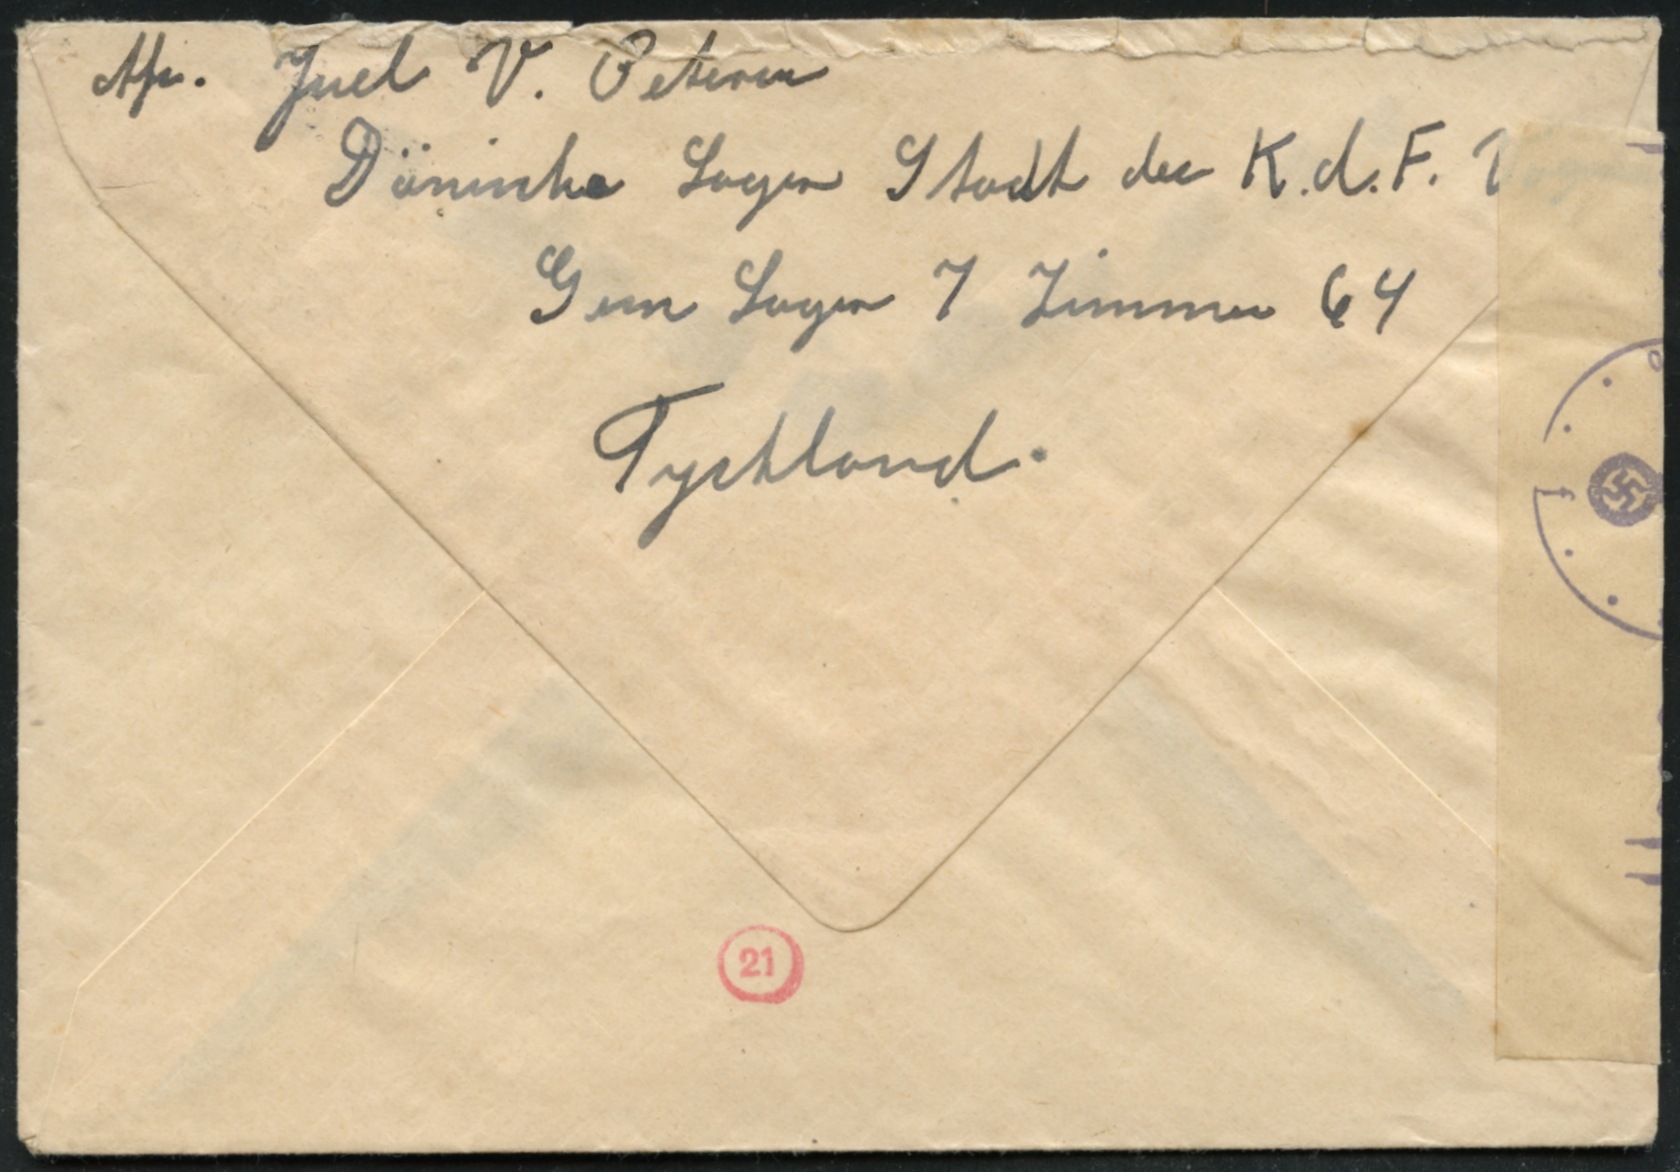 Afs. Juel V. Petersen
Dänische Lager Stadt des K.d.F.
Gem Lager 7 Zimmer 64
Tyskland.
21